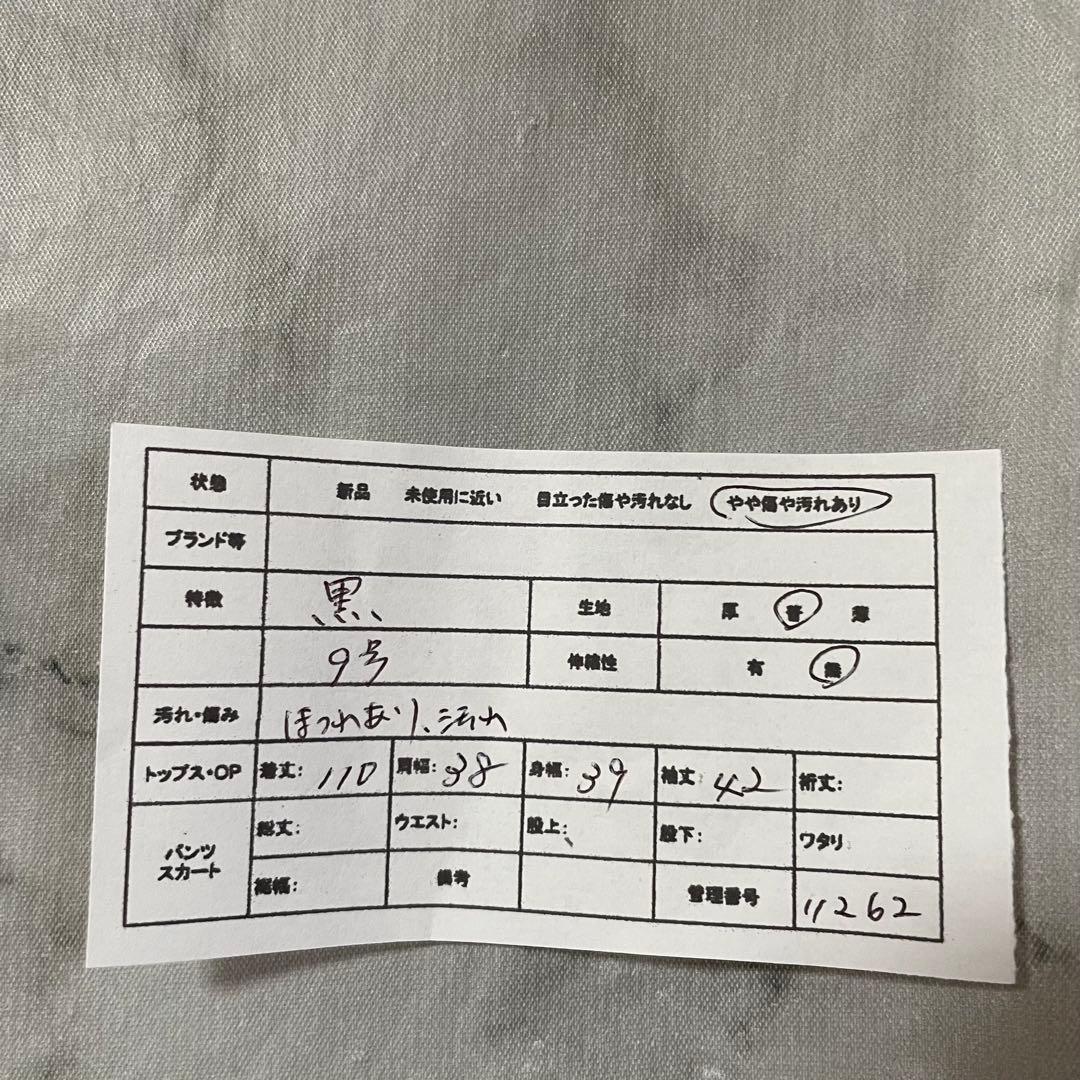 状態 新品 未使用に近い 目立った傷や汚れなし やや傷や汚れあり
ブランド等
特徴 黒 生地 厚 普 薄
9号 伸縮性 有 無
汚れ・傷み ほつれあり、汚れ
トップス・OP 着丈: 110 肩幅: 38 身幅: 39 袖丈: 42 裄丈:
パンツ スカート 総丈: ウエスト: 股上: 股下: ワタリ:
裾幅: 備考 管理番号 11262